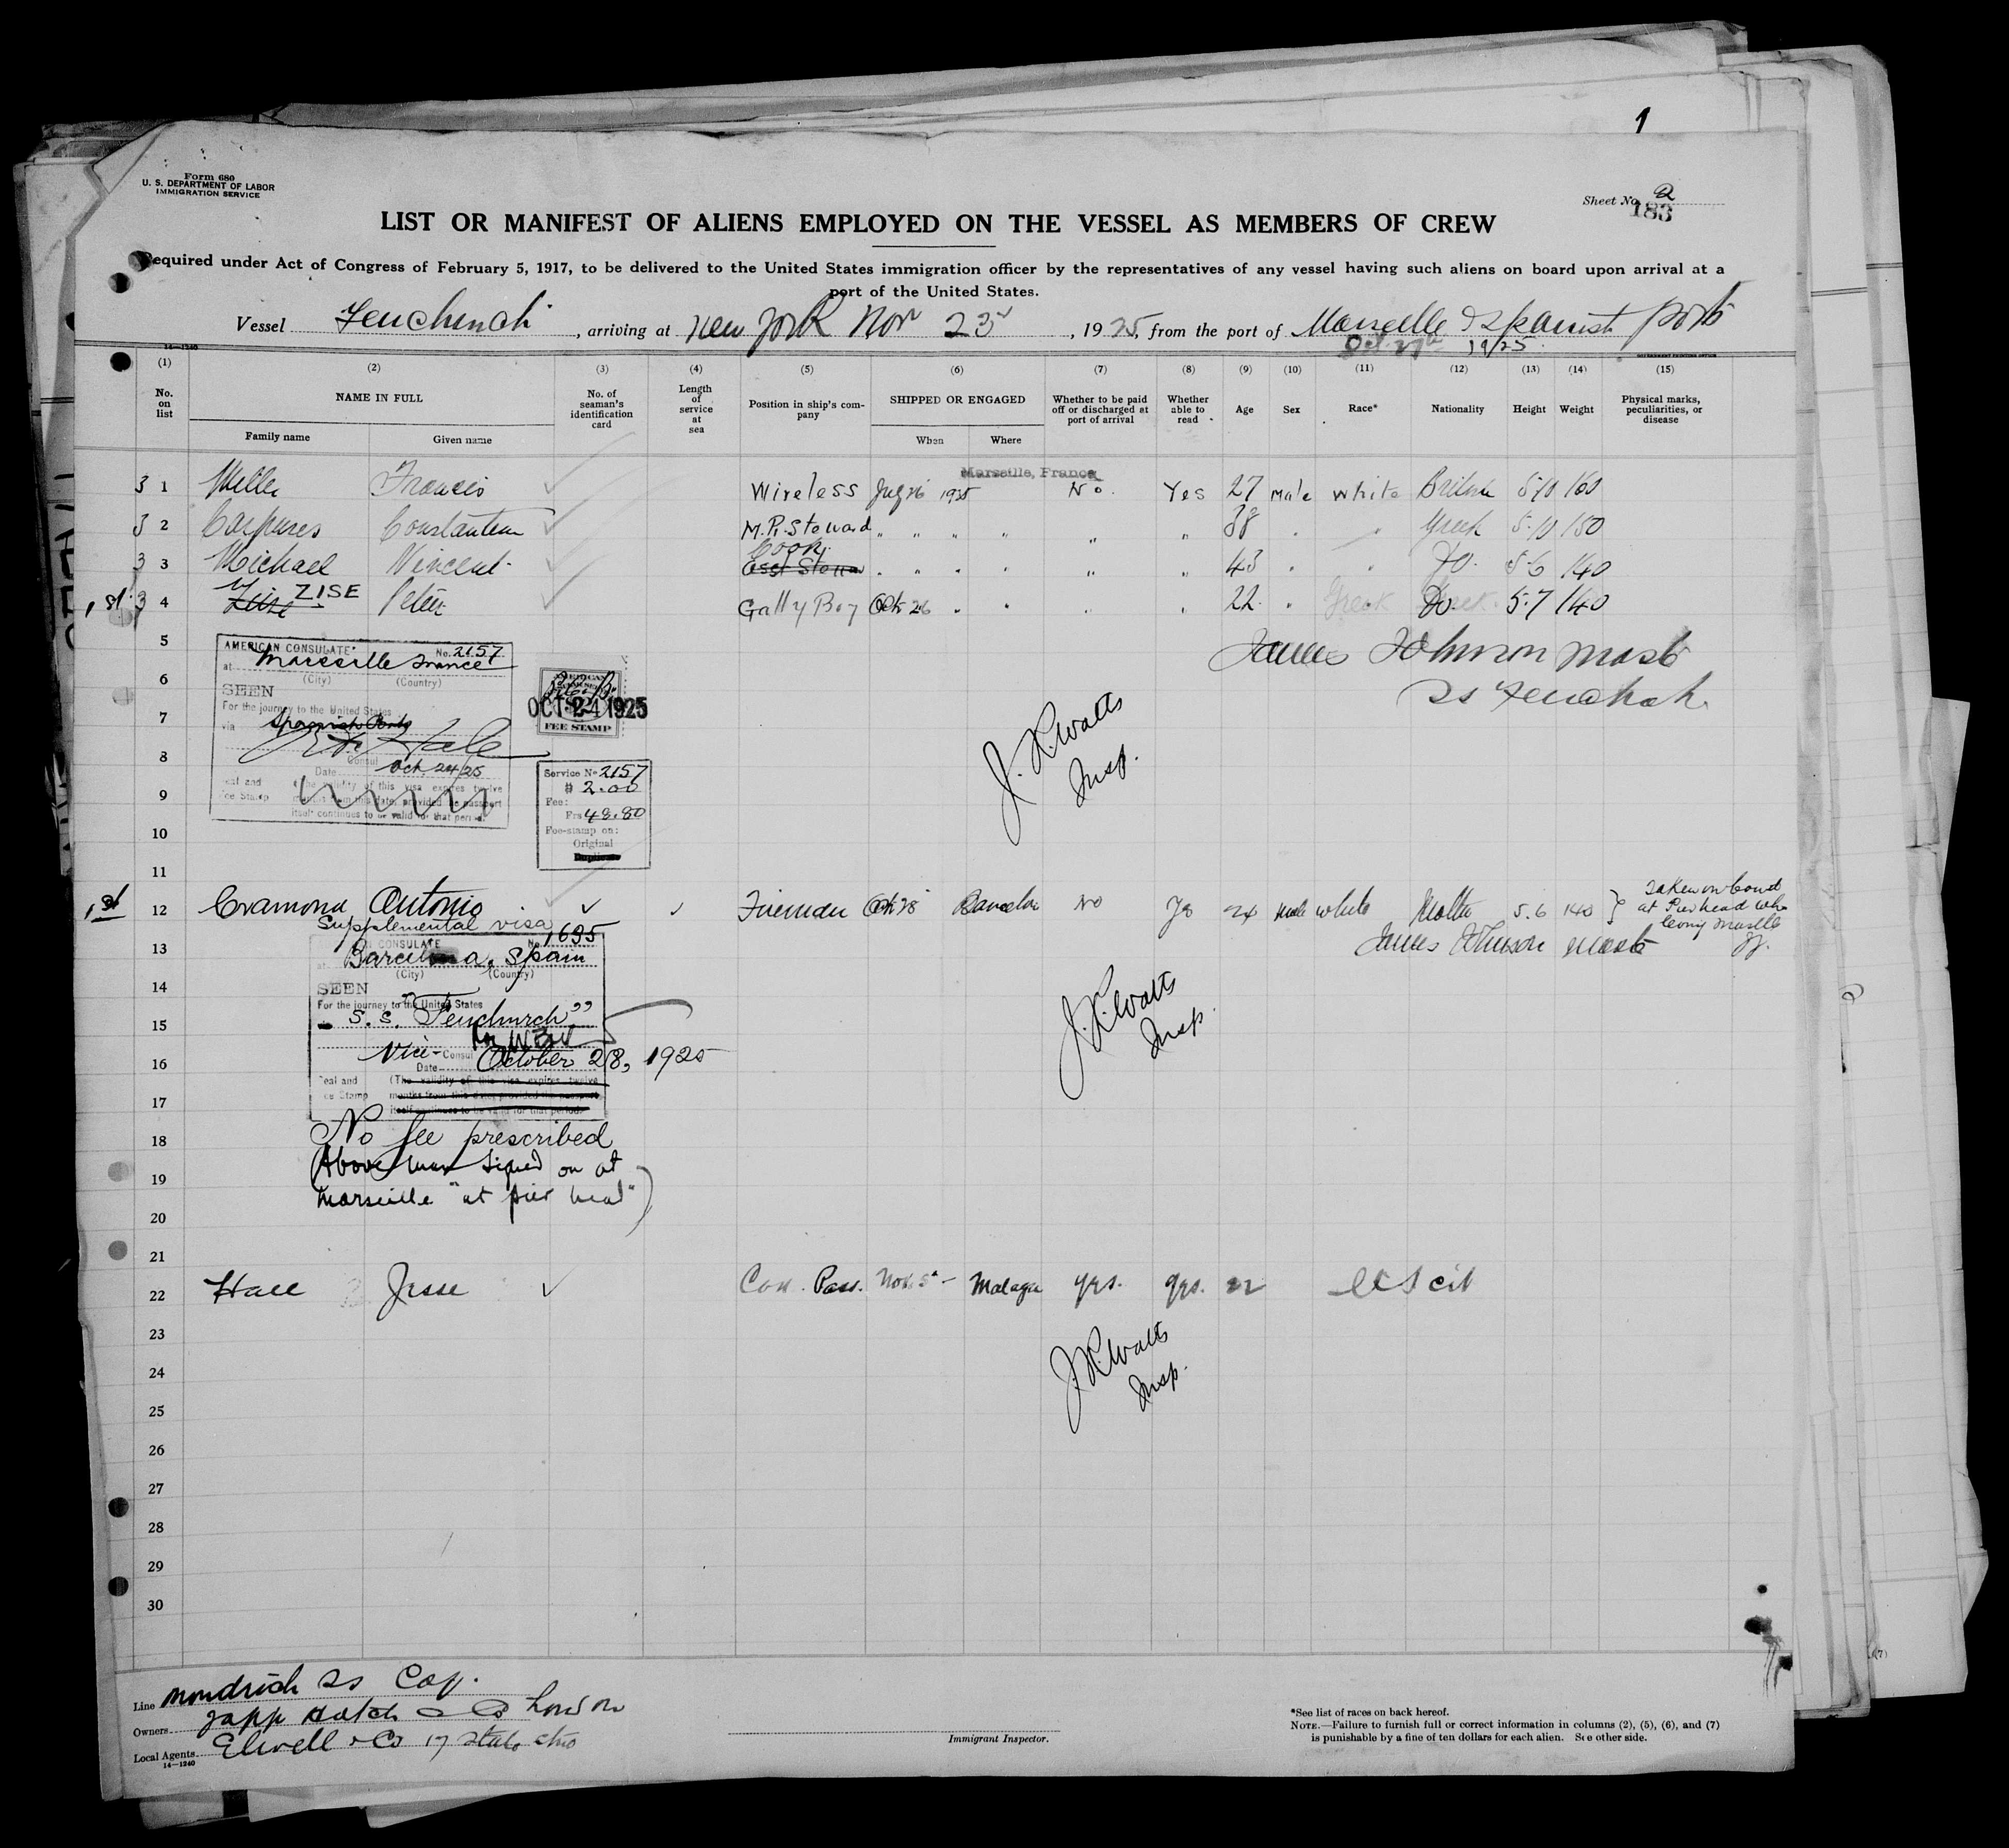 1
Form 680
U. S. DEPARTMENT OF LABOR
IMMIGRATION SERVICE
Sheet No. 2
183
LIST OR MANIFEST OF ALIENS EMPLOYED ON THE VESSEL AS MEMBERS OF CREW
Required under Act of Congress of February 5, 1917, to be delivered to the United States immigration officer by the representatives of any vessel having such aliens on board upon arrival at a
port of the United States.
Vessel Fenchurch, arriving at New York Nov 23, 1925, from the port of Marseille & Spanish ports
Oct 27th 1925
14-1240
GOVERNMENT PRINTING OFFICE
(1) (2) (3) (4) (5) (6) (7) (8) (9) (10) (11) (12) (13) (14) (15)
No. on list NAME IN FULL No. of seaman's identification card Length of service at sea Position in ship's company SHIPPED OR ENGAGED Whether to be paid off or discharged at port of arrival Whether able to read Age Sex Race* Nationality Height Weight Physical marks, peculiarities, or disease
Family name Given name When Where
Marseille, France
3 1 Francis Wireless July 26 1925 No. Yes 27 Male White British 5-10 160
3 2 Constantin M.R. Steward " " " " " " 38 " " Greek 5-10 150
Cook
3 3 Michael Vincent Asst Stewa " " " " " " 43 " " Do. 5-6 140
1st 3 4 ZISE Peter Gally Boy Oct 26 " " " " 22 " Greek Do 5-7 140
5
James Johnson Master
SS Fenchurch
AMERICAN CONSULATE No. 2157
at Marseille France
(City) (Country)
6
SEEN
For the journey to the United States
7
via Spanish Ports
OCT 24 1925
FEE STAMP
J. R. Watts
Insp.
8
Consul
Date Oct. 24/25
Seal and Fee Stamp (The validity of this visa expires twelve
9
months from this date, provided the passport
itself continues to be valid for that period.
Service No 2157
$ 2.00
Fee:
Frs 48.80
Fee-stamp on:
Original
Duplicate
10
11
1st 12 Cramona Antonio Fireman Oct 28 Barcelona No Yes 24 Male White Malta 5.6 140 Taken on board
at Pier head when
leaving Marseille
JJ.
Supplemental visa
James Johnson Master
CONSULATE No. 1695
13
Barcelona, Spain
(City) (Country)
14
SEEN
For the journey to the United States
15
S. S. "Fenchurch"
J. R. Watts
Insp.
16
Vice-Consul
Date October 28, 1925
Seal and Fee Stamp (The validity of this visa expires twelve
17
months from this date, provided the passport
itself continues to be valid for that period.
18
No fee prescribed
(Above man signed on at
19
Marseille "at pier head")
20
21
22 Hall Jesse Con. Pass. Nov. 5 - Malaga yes. yes. 22 US cit
23
J. R. Watts
Insp.
24
25
26
27
28
29
30
Line SS Cop.
Owners London
Local Agents Elwell & Co 17 State
14-1240
Immigrant Inspector.
*See list of races on back hereof.
NOTE.—Failure to furnish full or correct information in columns (2), (5), (6), and (7)
is punishable by a fine of ten dollars for each alien. See other side.